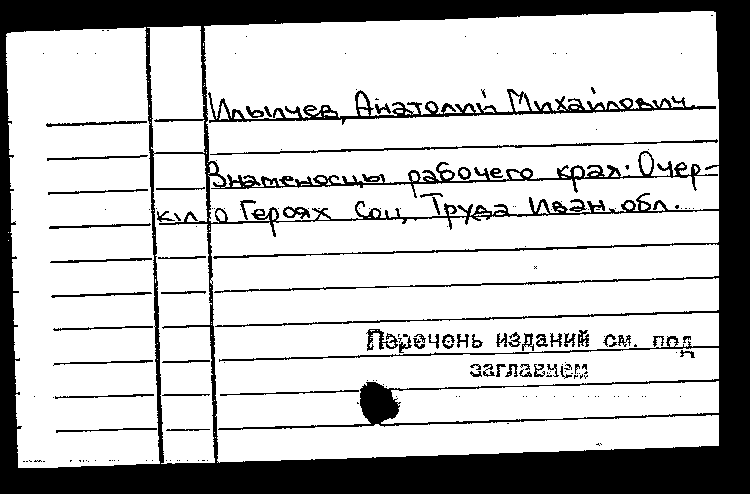 Ильичев, Анатолий Михайлович.
Знаменосцы рабочего края: Очер-
ки о Героях Соц. Труда Иван. обл.
Перечень изданий см. под
заглавием